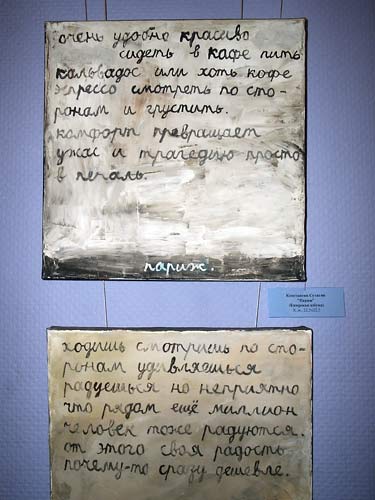 очень удобно красиво
сидеть в кафе пить
кальвадос или хоть кофе
эспрессо смотреть по сто-
ронам и грустить.
комфорт превращает
ужас и трагедию просто
в печаль.
париж.
Константин Сутягин
"Париж"
ходишь смотришь по сто-
ронам удивляешься
радуешься но неприятно
что рядам ещё миллион
человек тоже радуются.
от этого своя радость
почему-то сразу дешевле.